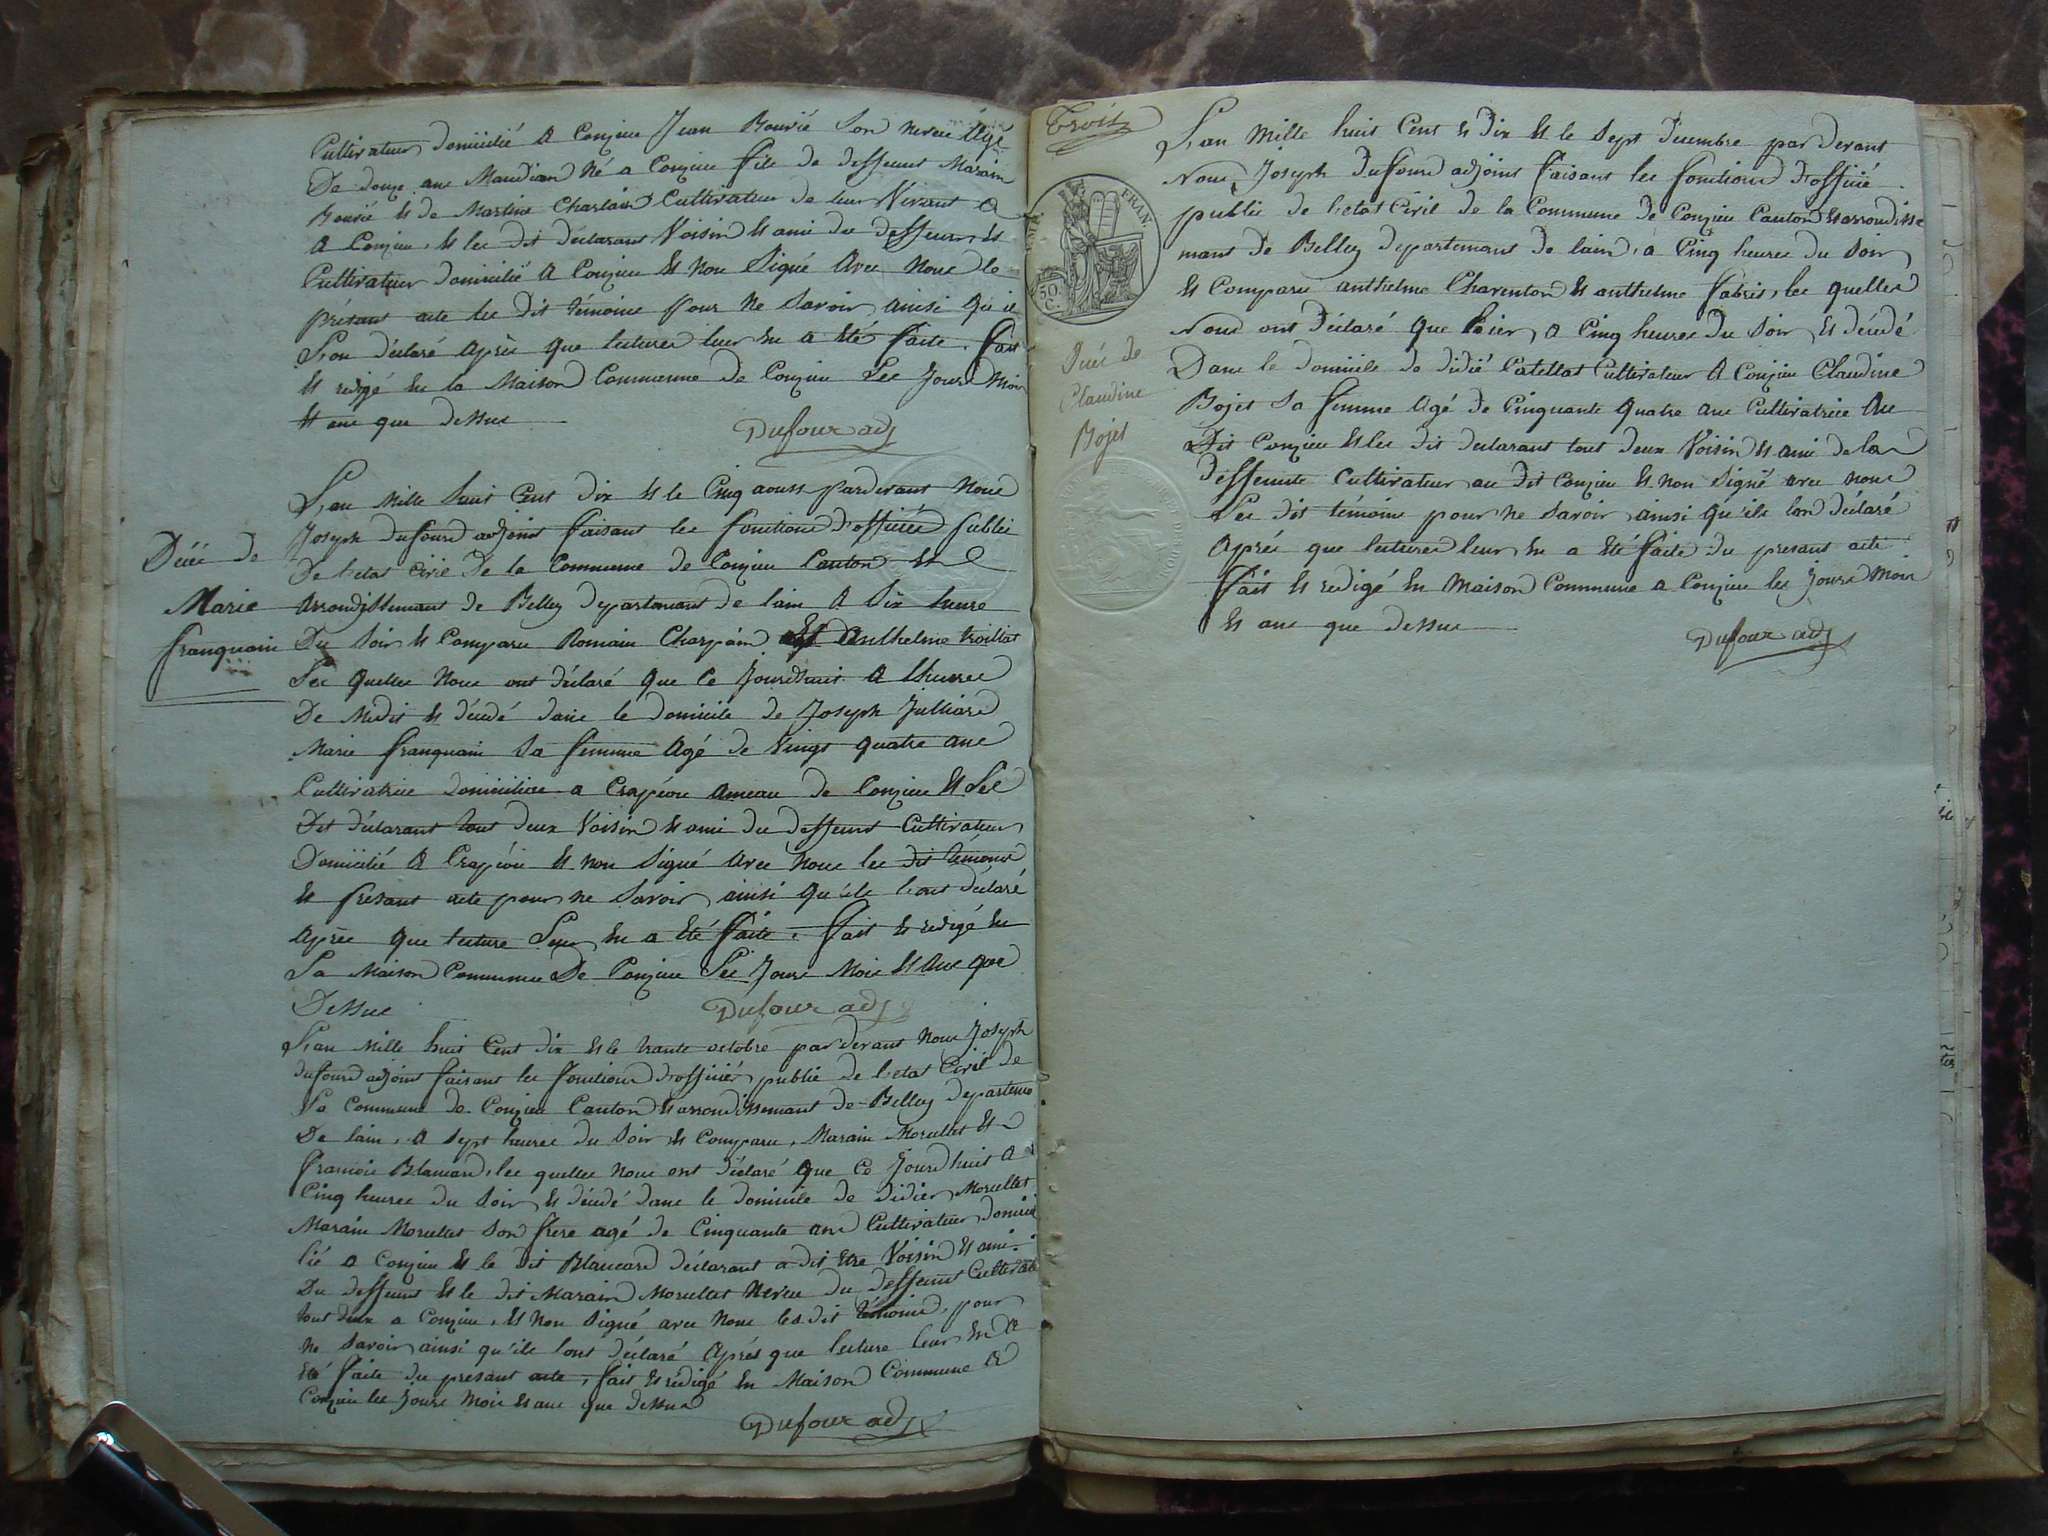 Cultivateur domicilié a Conzieu Jean Bourié Son neveu Agé
De douze ans Mandian né a Conzieu fils de deffeunt Marain
Bourié et de Martine Charlain Cultivateur de leur Vivant a
a Conzieu, et les dit déclarant Voisin et ami du deffeunt et
Cultivateur domicilié a Conzieu et non Signé avec nous le
présant acte les Dit témoins pour ne Savoir ainsi qu'il
L'on déclaré Après que lecturer leur en a été faite. fait
et redigé en la Maison Commune de Conzieu Les Jours Mois
et ans que dessus
Dufour adj
Décé de
Marie
franquain
L'an Mille huit Cent Dix et le Cinq aoust pardevant Nous
Joseph dufourd adjoint faisant les fonctions d'officiés Public
De l'etat Civil De la Commune de Conzieu Canton et
Arrondissemant de Belley departemant de lain a Six heures
Du Soir et Comparu Romain Charpain et Anthelme troilliat
Les quelles Nous ont déclaré que Ce Jourdhuit a lheures
De Medit et décédé dans le domicile de Joseph Julliard
Marie franquain Sa femme Agé de Vingt quatre ans
Cultivatrice domiciliée a Crapéou ameau de Conzieu et Les
Dit déclarant tout deux Voisin et ami du deffeunt Cultivateur
Domicilié a Crapéou et non Signé Avec Nous les dit témoins
et présant acte pour ne Savoir ainsi qu'ils l'ont déclaré
Après que lecture Leur en a été faite. fait et redigé en
La Maison Commune De Conzieu Les Jours Mois et Ans que
Dessus
Dufour adj
L'an Mille huit Cent dix et le trante octobre pardevant Nous Joseph
dufourd adjoint faisant les fonctions d'officiér public de l'etat Civil de
La Commune de Conzieu Canton et arrondissemant de Belley departema
De lain, a Sept heures du Soir et Comparu, Marain Morcellet et
francois Blancard, les quelles nous ont déclaré que Ce Jourdhuit a
Cinq heures du Soir et décédé dans le domicile de didier Morcellet
Marain Morcellet Son frere agé de Cinquante ans Cultivateur domici
lié a Conzieu et le Dit Blancard déclarant a dit etre Voisin et ami
Du deffeunt et le dit Marain Morcellet Neveu du deffeunt Cultivat
tout deux a Conzieu, et Non Signé avec Nous les dit témoins, pour
ne Savoir ainsi qu'ils lont déclaré Après que lecture leur en a
été faite du présant acte, fait et redigé en Maison Commune a
Conzieu les Jours Mois et ans que dessus
Dufour adj
Trois
FRAN.
50
C.
Décé de
Claudine
Bojet
L'an Mille huit Cent et Dix et le Sept decembre pardevant
Nous Joseph Dufourd adjoint faisant les fonctions d'officié
public de l'etat Civil de la Commune de Conzieu Canton et arrondisse
mant de Belley departemant de lain, a Cinq heures du Soir
et Comparu anthelme Charenton et anthelme fabris, les quelles
Nous ont déclaré que hier, a Cinq heures du Soir et décédé
Dans le domicile de didié Catellat Cultivateur a Conzieu Claudine
Bojet Sa femme Agé de Cinquante quatre ans Cultivatrice Au
Dit Conzieu et les dit déclarant tout deux Voisin et ami de la
deffeunte Cultivateur au Dit Conzieu et non Signé avec nous
Les dit témoins pour ne Savoir ainsi qu'ils lon déclaré
Après que lecturer leur en a été faite du présant acte
fait et redigé en Maison Commune a Conzieu les Jours Mois
et ans que dessus
Dufour adj